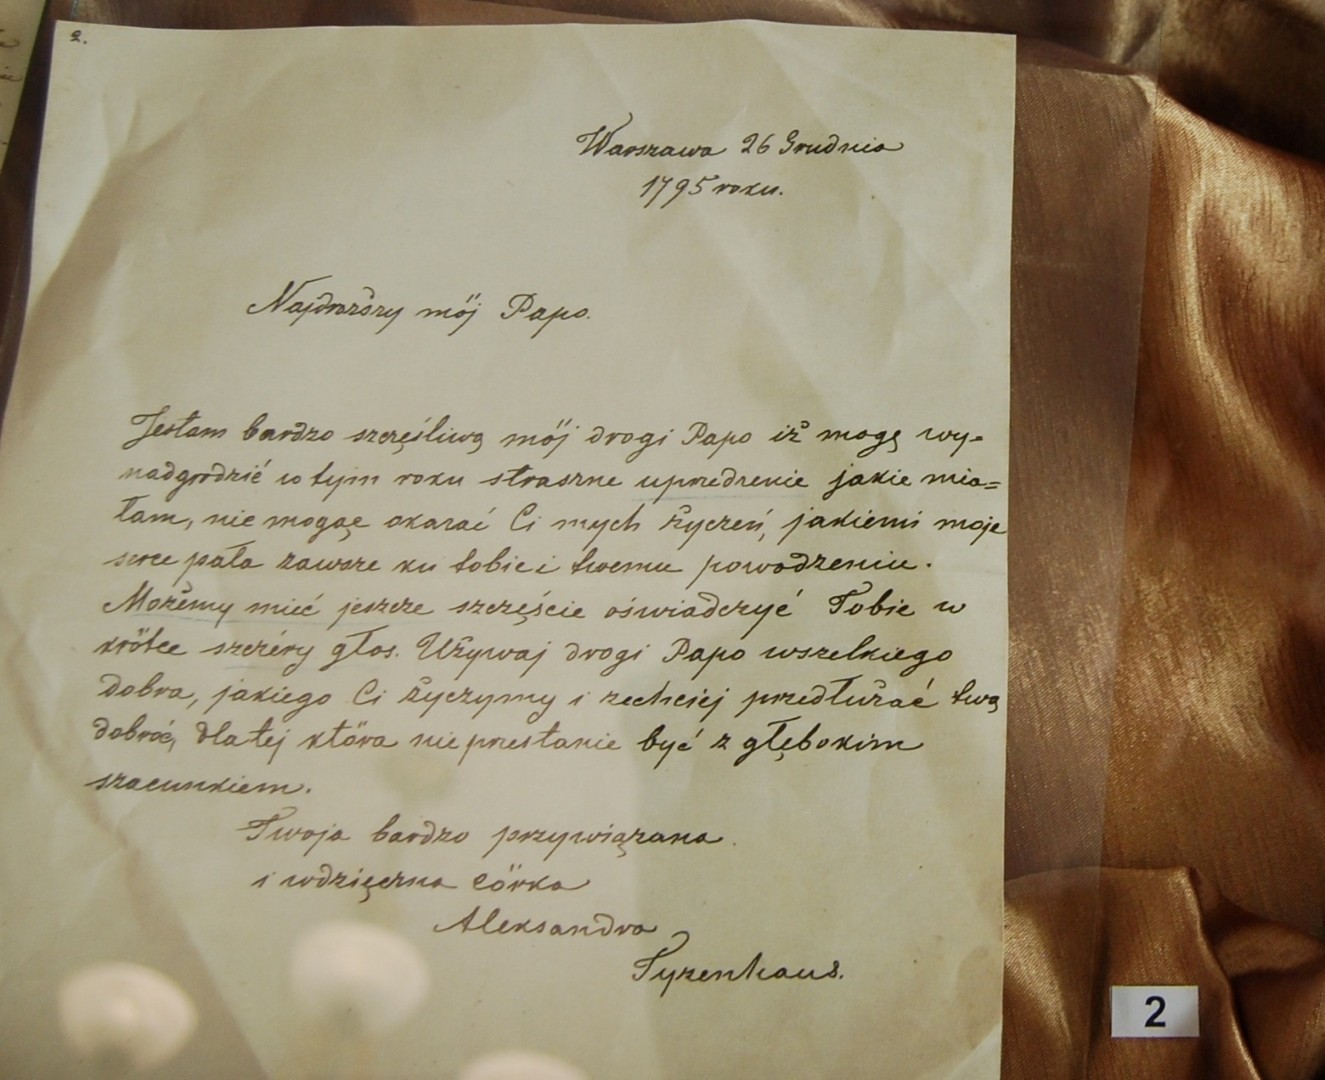 2.
Warszawa 26 Grudnia
1795 roku.
Najdroższy mój Papo.
Jestam bardzo szczęśliwą mój drogi Papo iż mogę wy=
nadgrodzić w tym roku straszne uprzedzenie jakie mia=
łam, nie mogąc okazać Ci mych życzeń, jakiemi moje
serce pała zawsze ku tobie i twemu powodzeniu.
Możemy mieć jeszcze szczęście oświadczyć Tobie w
krótce szczéry głos. Używaj drogi Papo wszelkiego
dobra, jakiego Ci życzymy i zechciej przedłużać twą
dobroć, dla tej która nie przestanie być z głębokim
szacunkiem.
Twoja bardzo przywiązana
i wdzięczna córka
Aleksandra
Tyzenhaus.
2